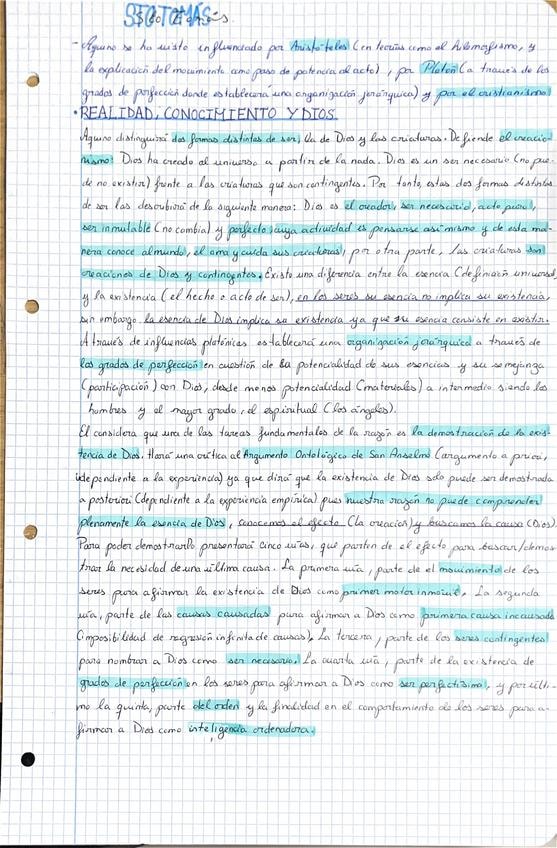 STO TOMÁS
Sto Tomás.
- Aquino se ha visto influenciado por Aristóteles (en teorías como el hilemorfismo, y
la explicación del movimiento como paso de potencia al acto), por Platón (a través de los
grados de perfección donde establecerá una organización jerárquica) y por el cristianismo
• REALIDAD, CONOCIMIENTO Y DIOS
Aquino distinguirá dos formas distintas de ser, la de Dios y las criaturas. Defiende el creacio-
nismo: Dios ha creado al universo a partir de la nada. Dios es un ser necesario (no pue-
de no existir) frente a las criaturas que son contingentes. Por tanto, estas dos formas distintas
de ser las describirá de la siguiente manera: Dios es el creador, ser necesario, acto puro,
ser inmutable (no cambia) y perfecto cuya actividad es pensarse así mismo y de esta ma-
nera conoce al mundo, el ama y cuida sus criaturas, por otra parte, las criaturas son
creaciones de Dios y contingentes. Existe una diferencia entre la esencia (definición universal)
y la existencia (el hecho o acto de ser), en los seres su esencia no implica su existencia,
sin embargo, la esencia de Dios implica su existencia ya que su esencia consiste en existir.
A través de influencias platónicas establecerá una organización jerárquica a través de
los grados de perfección en cuestión de la potencialidad de sus esencias y su semejanza
(participación) con Dios, desde menos potencialidad (materiales) a intermedio siendo los
hombres y el mayor grado, el espiritual (los ángeles).
El considera que una de las tareas fundamentales de la razón es la demostración de la exis-
tencia de Dios. Hará una crítica al Argumento Ontológico de San Anselmo (argumento a priori,
independiente a la experiencia) ya que dirá que la existencia de Dios solo puede ser demostrada
a posteriori (dependiente a la experiencia empírica) pues nuestra razón no puede comprender
plenamente la esencia de Dios, conocemos el efecto (la creación) y buscamos la causa (Dios).
Para poder demostrarlo presentará cinco vías, que parten de el efecto para buscar/demos-
trar la necesidad de una última causa. La primera vía, parte de el movimiento de los
seres para afirmar la existencia de Dios como primer motor inmóvil. La segunda
vía, parte de las causas causadas para afirmar a Dios como primera causa incausada
(imposibilidad de regresión infinita de causas). La tercera, parte de los seres contingentes
para nombrar a Dios como ser necesario. La cuarta vía, parte de la existencia de
grados de perfección en los seres para afirmar a Dios como ser perfectísimo, y por últi-
mo la quinta, parte del orden y la finalidad en el comportamiento de los seres para a-
firmar a Dios como inteligencia ordenadora.